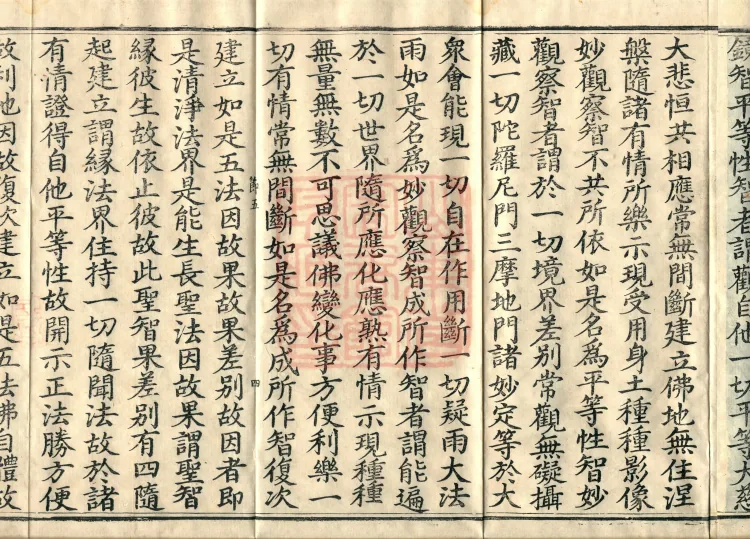 鏡智平等性智者謂觀自他一切平等大慈
大悲恒共相應常無間斷建立佛地無住涅
槃隨諸有情所樂示現受用身土種種影像
妙觀察智不共所依如是名爲平等性智妙
觀察智者謂於一切境界差別常觀無礙攝
藏一切陀羅尼門三摩地門諸妙定等於大
衆會能現一切自在作用斷一切疑雨大法
雨如是名爲妙觀察智成所作智者謂能遍
於一切世界隨所應化應熟有情示現種種
無量無數不可思議佛變化事方便利樂一
切有情常無間斷如是名爲成所作智復次
四
建立如是五法因故果故果差別故因者即
是清淨法界是能生長聖法因故果謂聖智
緣彼生故依止彼故此聖智果差別有四隨
起建立謂緣法界住持一切隨聞法故於諸
有情證得自他平等性故開示正法勝方便
故利他因故復次建立如是五法佛自體故